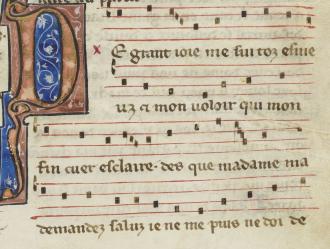 E grant ioie me sui toz esmue
uz a mon voloir qui mon
fin cuer esclaire. des que madame ma
demandez saluz ie ne me puis ne doi de